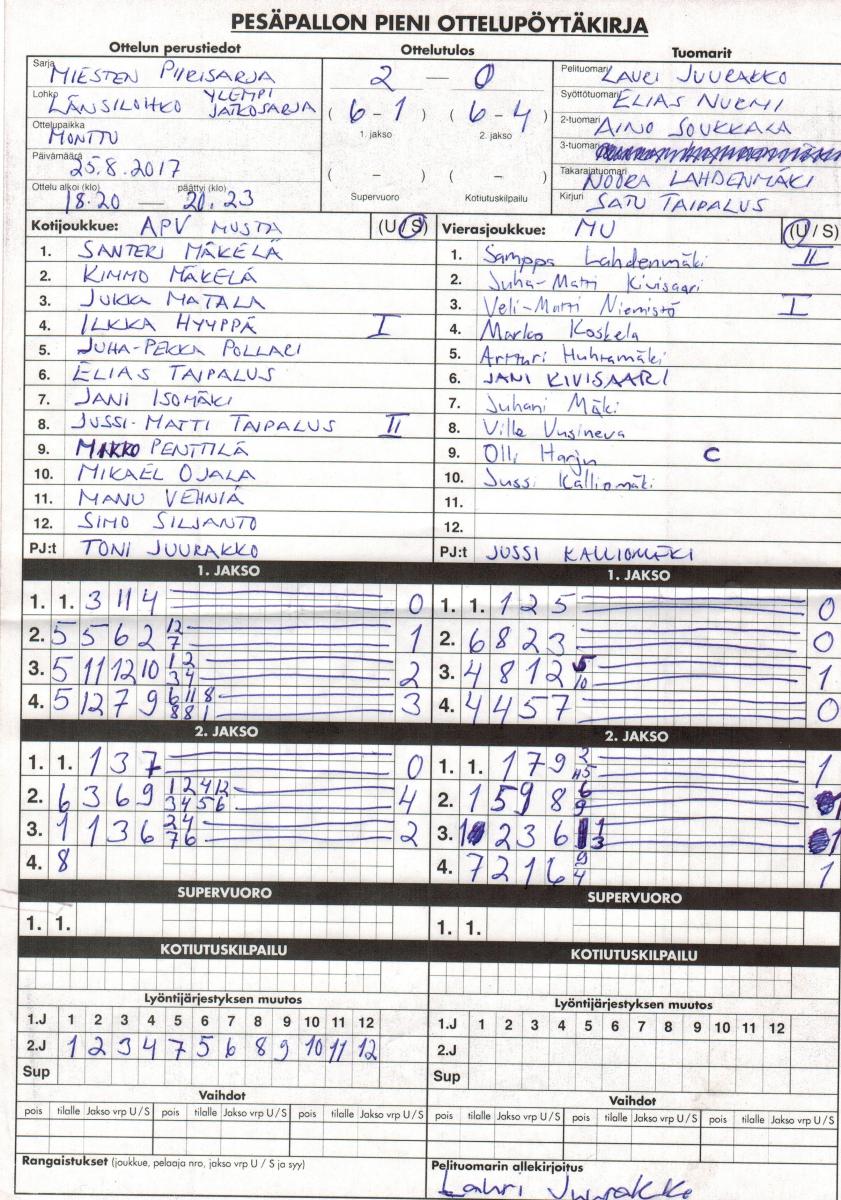 PESÄPALLON PIENI OTTELUPÖYTÄKIRJA
Ottelun perustiedot
Sarja MIESTEN PIIRISARJA
Lohko LÄNSILOHKO YLEMPI JATKOSARJA
Ottelupaikka MONTTU
Päivämäärä 25.8.2017
Ottelu alkoi (klo) 18.20 — päättyi (klo) 20.23
Ottelutulos
2 — 0
( 6-1 ) ( 6-4 )
1. jakso 2. jakso
( - ) ( - )
Supervuoro Kotiutuskilpailu
Tuomarit
Pelituomari LAURI JUURAKKO
Syöttötuomari ELIAS NURMI
2-tuomari AINO SOUKKALA
3-tuomari
Takarajatuomari NOORA LAHDENMÄKI
Kirjuri SATU TAIPALUS
Kotijoukkue: APV MUSTA (U/S)
1. SANTERI MÄKELÄ
2. KIMMO MÄKELÄ
3. JUKKA MATALA
4. ILKKA HYYPPÄ I
5. JUHA-PEKKA POLLARI
6. ELIAS TAIPALUS
7. JANI ISOMÄKI
8. JUSSI-MATTI TAIPALUS II
9. MIKKO PENTTILÄ
10. MIKAEL OJALA
11. MANU VEHNIÄ
12. SIMO SILJANTO
PJ:t TONI JUURAKKO
Vierasjoukkue: MU (U/S)
1. Samppa Lahdenmäki II
2. Juha-Matti Kivisaari
3. Veli-Matti Niemistö I
4. Marko Koskela
5. Artturi Huhtamäki
6. JANI KIVISAARI
7. Juhani Mäki
8. Ville Uusineva
9. Olli Harju C
10. Jussi Kalliomäki
11.
12.
PJ:t JUSSI KALLIOMÄKI
1. JAKSO
1. 1. 3 11 4 0
2. 5 5 6 2 12 7 1
3. 5 11 12 10 1 2 3 4 2
4. 5 12 7 9 6 11 8 8 8 1 3
1. JAKSO
1. 1. 1 2 5 0
2. 6 8 2 3 0
3. 4 8 1 2 5 10 1
4. 4 4 5 7 0
2. JAKSO
1. 1. 1 3 7 0
2. 6 3 6 9 1 2 4 12 3 4 5 6 4
3. 1 1 3 6 2 4 7 6 2
4. 8
2. JAKSO
1. 1. 1 7 9 2 1
2. 1 5 9 8 6 9 1
3. 1 2 3 6 1 3 1
4. 7 2 1 6 9 4 1
SUPERVUORO
1. 1.
SUPERVUORO
1. 1.
KOTIUTUSKILPAILU
KOTIUTUSKILPAILU
Lyöntijärjestyksen muutos
1.J 1 2 3 4 5 6 7 8 9 10 11 12
2.J 1 2 3 4 7 5 6 8 9 10 11 12
Sup
Lyöntijärjestyksen muutos
1.J 1 2 3 4 5 6 7 8 9 10 11 12
2.J
Sup
Vaihdot
pois tilalle Jakso vrp U / S pois tilalle Jakso vrp U / S pois tilalle Jakso vrp U / S
Vaihdot
pois tilalle Jakso vrp U / S pois tilalle Jakso vrp U / S pois tilalle Jakso vrp U / S
Rangaistukset (joukkue, pelaaja nro, jakso vrp U / S ja syy)
Pelituomarin allekirjoitus
Lauri Juurakko